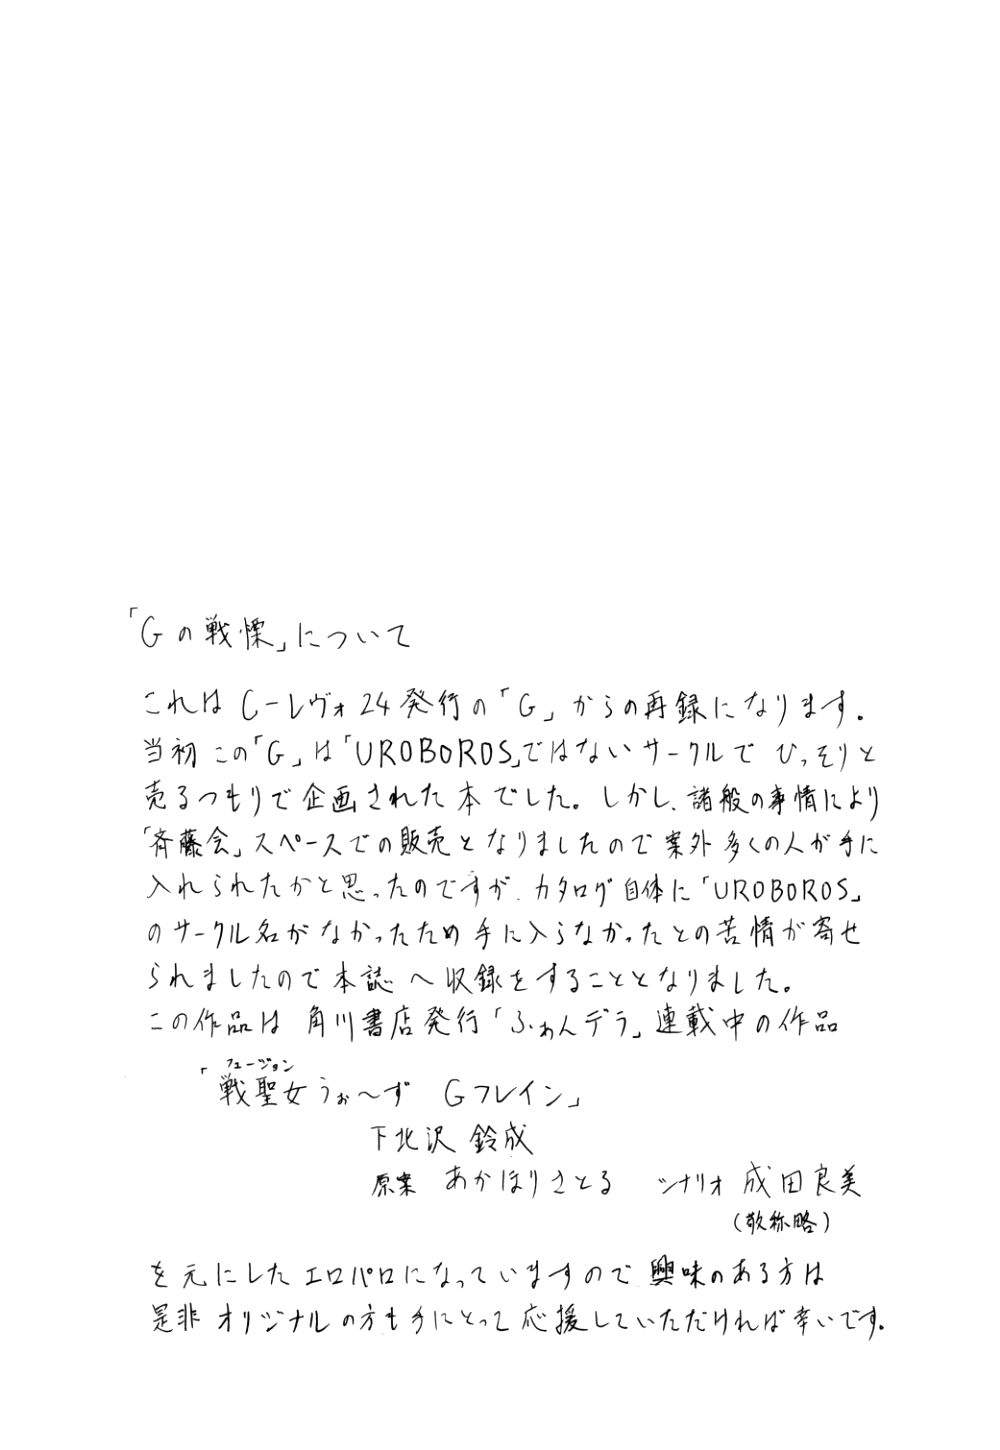 「Gの戦慄」について
これはC-レヴォ24発行の「G」からの再録になります。
当初この「G」は「UROBOROS」ではないサークルでひっそりと
売るつもりで企画された本でした。しかし、諸般の事情により
「斉藤会」スペースでの販売となりましたので案外多くの人が手に
入れられたかと思ったのですが、カタログ自体に「UROBOROS」
のサークル名がなかったため手に入らなかったとの苦情が寄せ
られましたので本誌へ収録をすることとなりました。
この作品は角川書店発行「ふぁんデラ」連載中の作品
フュージョン
「戦聖女うぉ〜ず Gフレイン」
下北沢 鈴成
原案 あかほりさとる シナリオ 成田良美
(敬称略)
を元にしたエロパロになっていますので興味のある方は
是非オリジナルの方も手にとって応援していただければ幸いです。